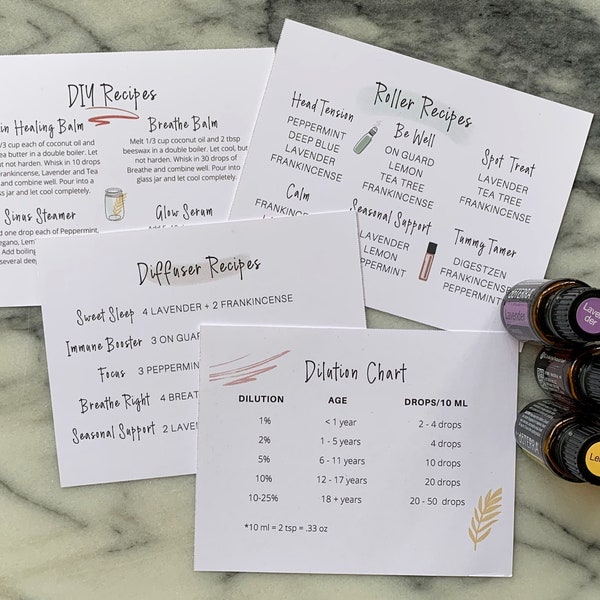 DIY Recipes
in Healing Balm
/3 cup each of coconut oil and
ea butter in a double boiler. Let
but not harden. Whisk in 10 drops
rankincense, Lavender and Tea
and combine well. Pour into a
glass jar and let cool completely.
Breathe Balm
Melt 1/3 cup coconut oil and 2 tbsp
beeswax in a double boiler. Let cool, but
not harden. Whisk in 30 drops of
Breathe and combine well. Pour into
glass jar and let cool completely.
Sinus Steamer
d one drop each of Peppermint,
egano, Lem
Add boiling
several deep
Glow Serum
Roller Recipes
Head Tension
PEPPERMINT
DEEP BLUE
LAVENDER
FRANKINCENSE
Be Well
ON GUARD
LEMON
TEA TREE
FRANKINCENSE
Spot Treat
LAVENDER
TEA TREE
FRANKINCENSE
Calm
FRANKINCE
Seasonal Support
LAVENDER
LEMON
PEPPERMINT
Tummy Tamer
DIGESTZEN
FRANKINCENSE
PEPPERMINT
Diffuser Recipes
Sweet Sleep 4 LAVENDER + 2 FRANKINCENSE
Immune Booster 3 ON GUAR
Focus 3 PEPPERMIN
Breathe Right 4 BREAT
Seasonal Support 2 LAVE
Dilution Chart
DILUTION AGE DROPS/10 ML
1% < 1 year 2 - 4 drops
2% 1 - 5 years 4 drops
5% 6 - 11 years 10 drops
10% 12 - 17 years 20 drops
10-25% 18 + years 20 - 50 drops
*10 ml = 2 tsp = .33 oz
Lavender
Laven
der
Le